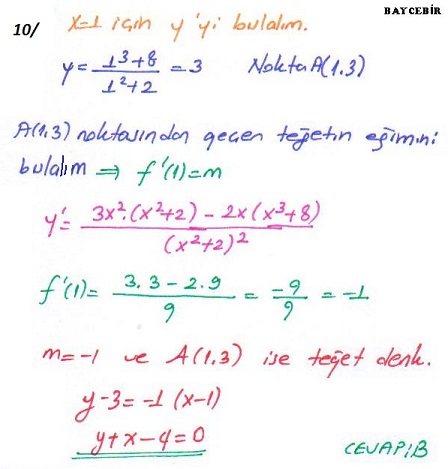 BAYCEBİR
10/ x=1 için y'yi bulalım.
y = (1³+8)/(1²+2) = 3 Nokta A(1,3)
A(1,3) noktasından geçen teğetin eğimini
bulalım ⇒ f'(1)=m
y' = (3x².(x²+2) - 2x(x³+8))/(x²+2)²
f'(1) = (3.3-2.9)/9 = -9/9 = -1
m=-1 ve A(1,3) ise teğet denk.
y-3=-1(x-1)
y+x-4=0 CEVAP:B